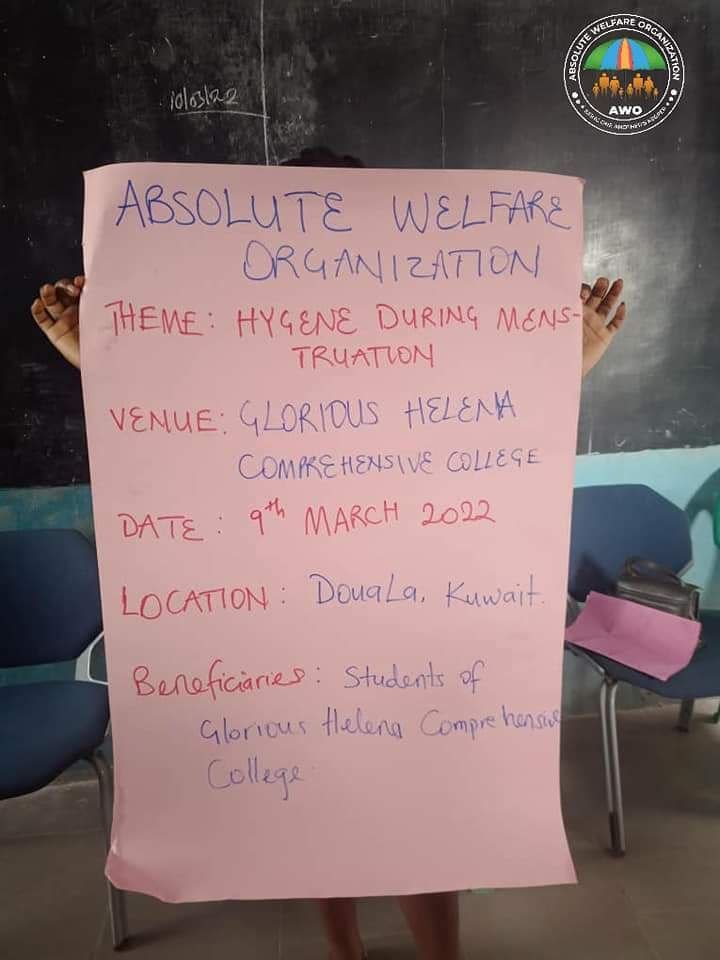 10/03/22
ABSOLUTE WELFARE ORGANIZATION
AWO
ABSOLUTE WELFARE
ORGANIZATION
THEME: HYGENE DURING MENS-
TRUATION
VENUE: GLORIOUS HELENA
COMPREHENSIVE COLLEGE
DATE: 9th MARCH 2022
LOCATION: DouaLa, Kuwait.
Beneficiaries: Students of
Glorious Helena Comprehensive
College.